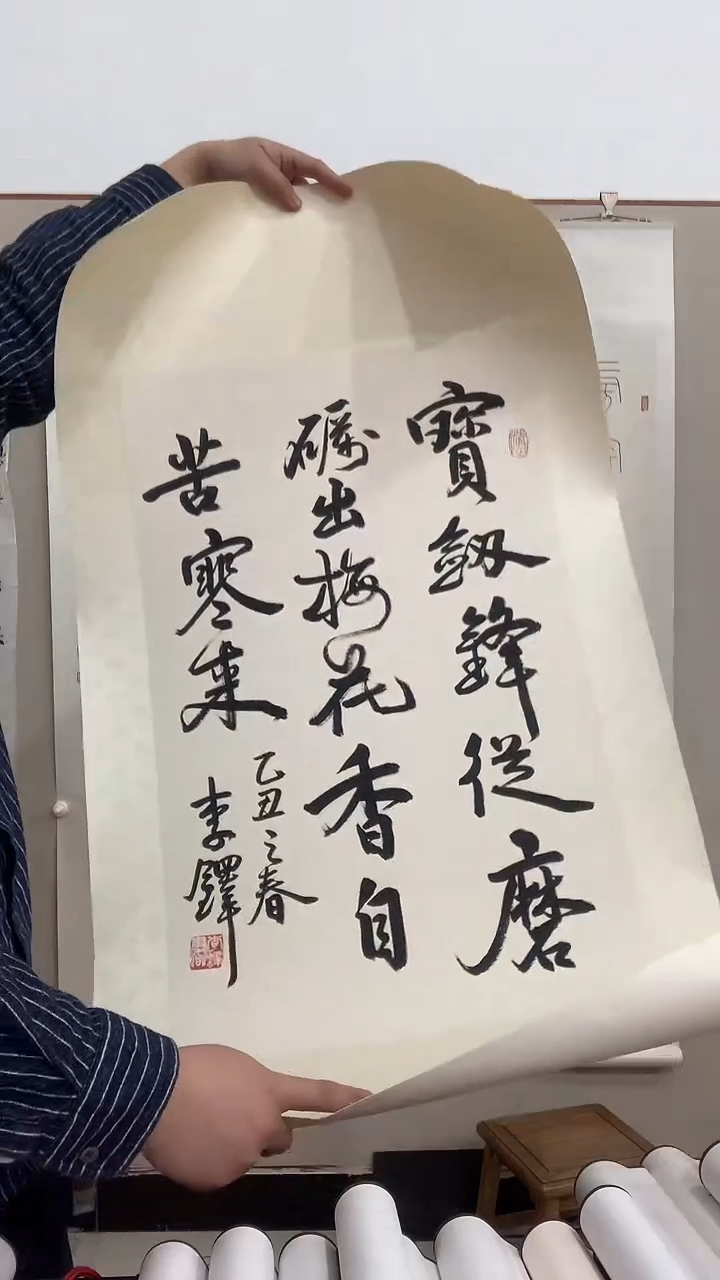 寶劔鋒從磨
礪出梅花香自
苦寒来
乙丑之春
李鐸